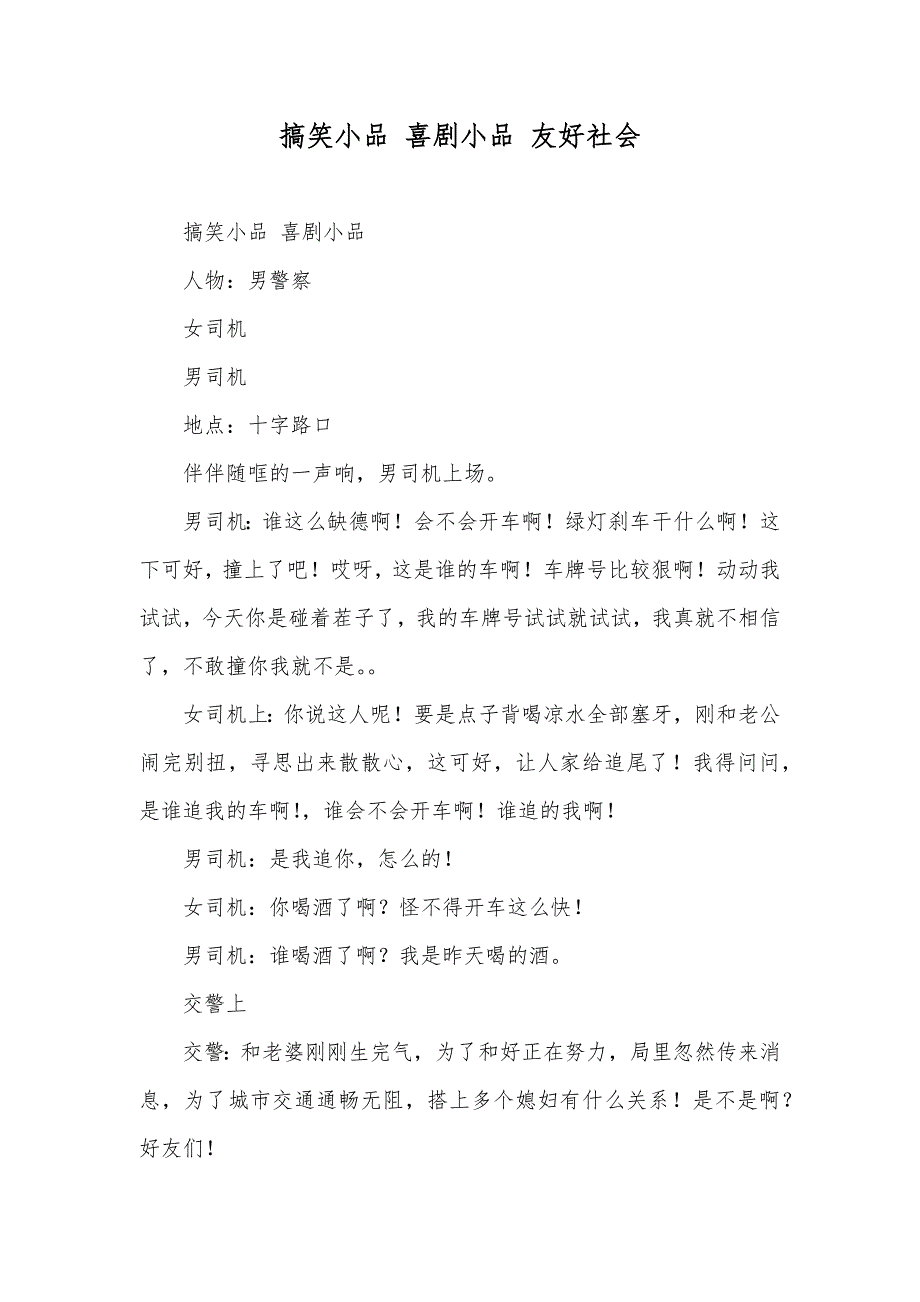 搞笑小品 喜剧小品 友好社会
搞笑小品 喜剧小品
人物：男警察
女司机
男司机
地点：十字路口
伴伴随哐的一声响，男司机上场。
男司机：谁这么缺德啊！会不会开车啊！绿灯刹车干什么啊！这
下可好，撞上了吧！哎呀，这是谁的车啊！车牌号比较狠啊！动动我
试试，今天你是碰着茬子了，我的车牌号试试就试试，我真就不相信
了，不敢撞你我就不是。。
女司机上：你说这人呢！要是点子背喝凉水全部塞牙，刚和老公
闹完别扭，寻思出来散散心，这可好，让人家给追尾了！我得问问，
是谁追我的车啊！，谁会不会开车啊！谁追的我啊！
男司机：是我追你，怎么的！
女司机：你喝酒了啊？怪不得开车这么快！
男司机：谁喝酒了啊？我是昨天喝的酒。
交警上
交警：和老婆刚刚生完气，为了和好正在努力，局里忽然传来消
息，为了城市交通通畅无阻，搭上多个媳妇有什么关系！是不是啊？
好友们！